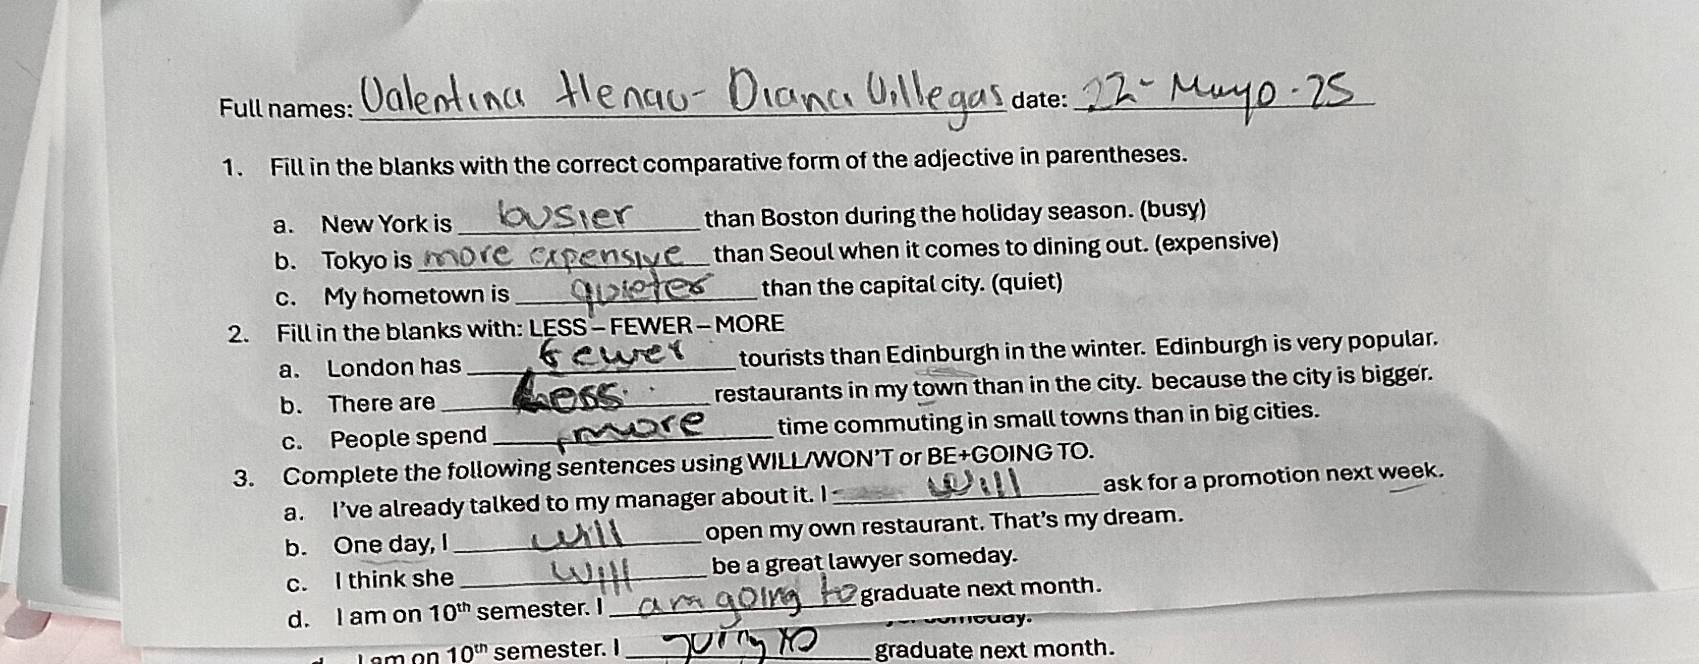 Full names: Valentina Henao - Diana Villegas date: 22 - Mayo - 25
1. Fill in the blanks with the correct comparative form of the adjective in parentheses.
a. New York is busier than Boston during the holiday season. (busy)
b. Tokyo is more expensive than Seoul when it comes to dining out. (expensive)
c. My hometown is quieter than the capital city. (quiet)
2. Fill in the blanks with: LESS – FEWER – MORE
a. London has fewer tourists than Edinburgh in the winter. Edinburgh is very popular.
b. There are less restaurants in my town than in the city. because the city is bigger.
c. People spend more time commuting in small towns than in big cities.
3. Complete the following sentences using WILL/WON'T or BE+GOING TO.
a. I've already talked to my manager about it. I will ask for a promotion next week.
b. One day, I will open my own restaurant. That's my dream.
c. I think she will be a great lawyer someday.
d. I am on 10th semester. I am going to graduate next month.
someday.
I am on 10th semester. I going to graduate next month.